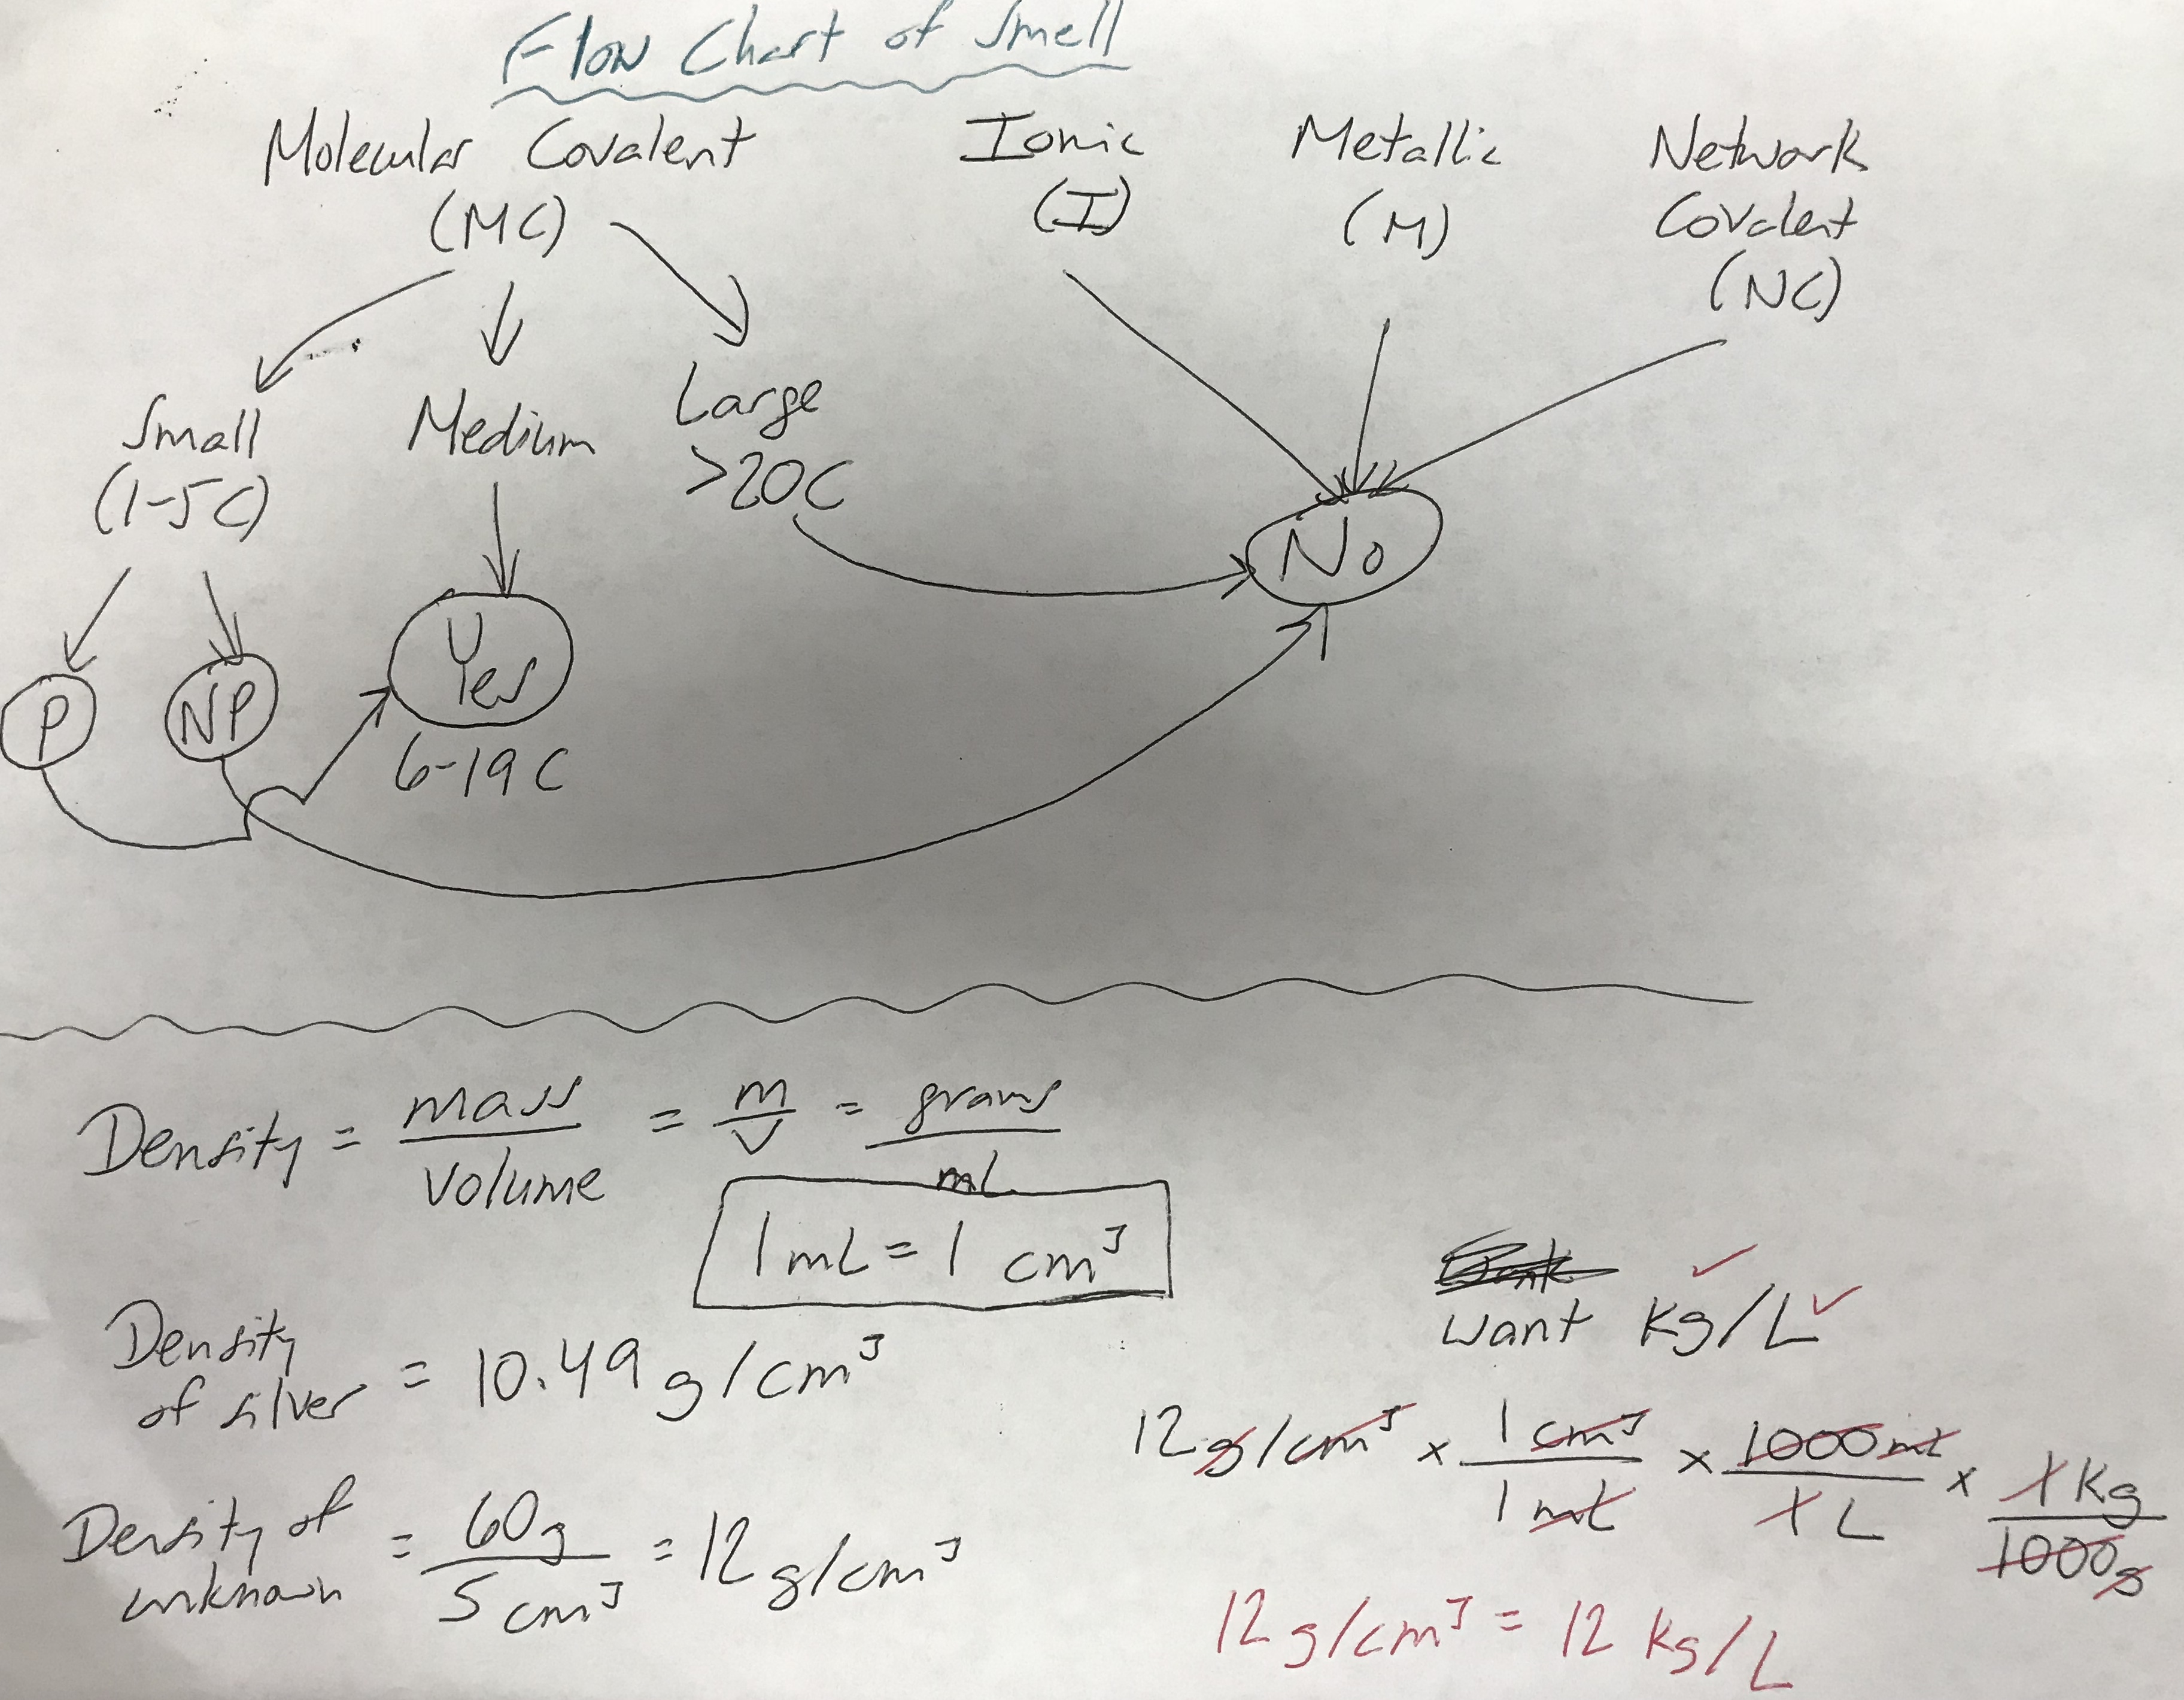 Flow Chart of Smell
Molecular Covalent
(MC)
Ionic
(I)
Metallic
(M)
Network
Covalent
(NC)
Small
(1-5C)
Medium
Large
>20C
P
NP
Yes
6-19C
No
Density = mass/volume = m/V = grams/mL
1mL = 1 cm³
Density
of silver = 10.49 g/cm³
Density of
unknown = 60g/5cm³ = 12g/cm³
want kg/L
12g/cm³ x 1cm³/1mL x 1000mL/1L x 1kg/1000g
12g/cm³ = 12 kg/L